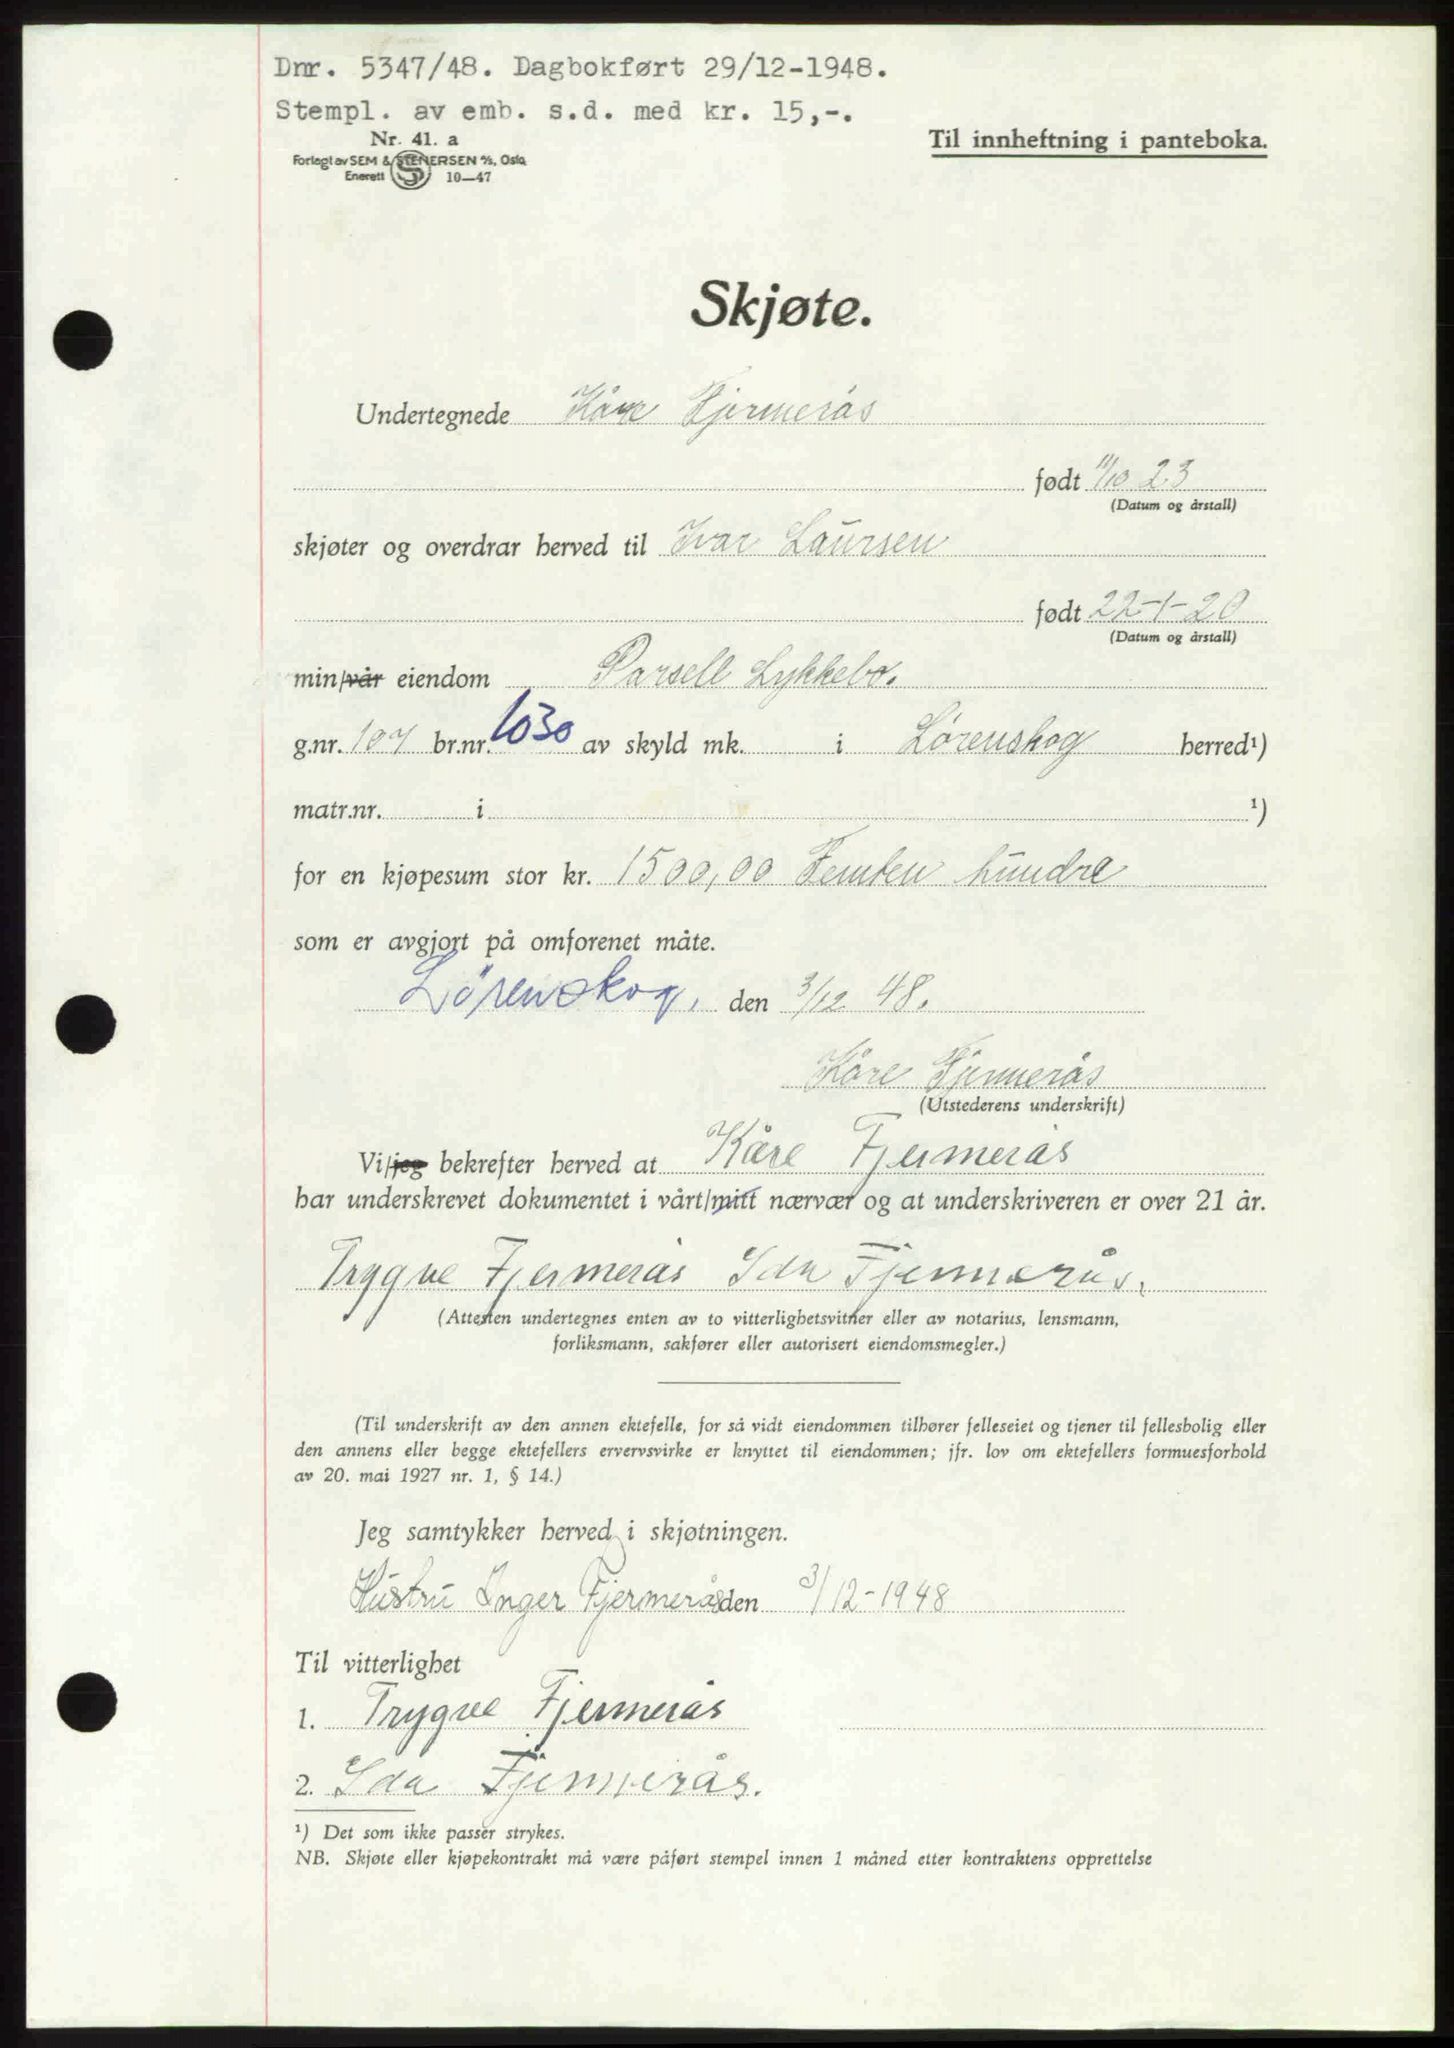 Dnr. 5347/48. Dagbokført 29/12-1948.
Stempl. av emb. s.d. med kr. 15,-.
Nr. 41. a
Forlagt av SEM & STENERSEN A/S, Oslo
Enerett 10—47
Til innheftning i panteboka.
Skjøte.
Undertegnede Kåre Fjermerås
født 11/10 23
(Datum og årstall)
skjøter og overdrar herved til Ivar Laursen
født 22-1-20
(Datum og årstall)
min/vår eiendom Parsell Lykkebo.
g.nr. 107 br.nr. 1030 av skyld mk. i Lørenskog herred¹)
matr.nr. i ¹)
for en kjøpesum stor kr. 1500,00 Femten hundre
som er avgjort på omforenet måte.
Lørenskog, den 3/12 48.
Kåre Fjermerås
(Utstederens underskrift)
Vi/jeg bekrefter herved at Kåre Fjermerås
har underskrevet dokumentet i vårt/mitt nærvær og at underskriveren er over 21 år.
Trygve Fjermerås Ida Fjermerås.
(Attesten undertegnes enten av to vitterlighetsvitner eller av notarius, lensmann,
forliksmann, sakfører eller autorisert eiendomsmegler.)
(Til underskrift av den annen ektefelle, for så vidt eiendommen tilhører felleseiet og tjener til fellesbolig eller
den annens eller begge ektefellers ervervsvirke er knyttet til eiendommen; jfr. lov om ektefellers formuesforhold
av 20. mai 1927 nr. 1, § 14.)
Jeg samtykker herved i skjøtningen.
Hustru Inger Fjermerås den 3/12-1948
Til vitterlighet
1. Trygve Fjermerås
2. Ida Fjermerås.
¹) Det som ikke passer strykes.
NB. Skjøte eller kjøpekontrakt må være påført stempel innen 1 måned etter kontraktens opprettelse